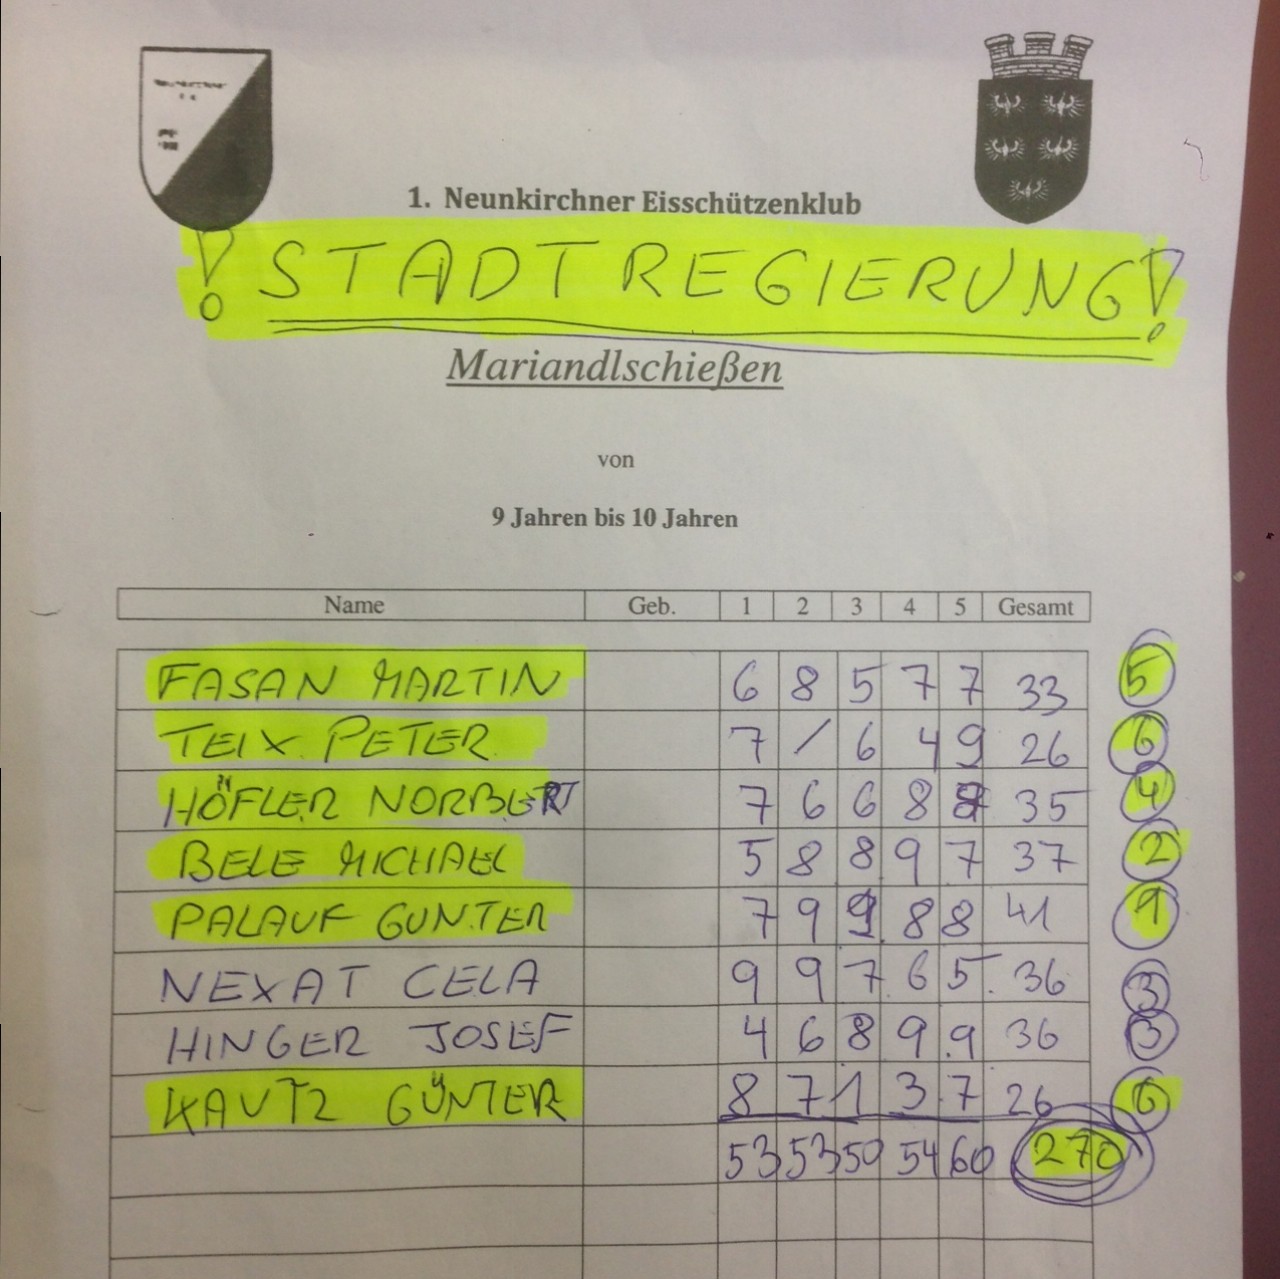 1. Neunkirchner Eisschützenklub
! STADTREGIERUNG!
Mariandlschießen
von
9 Jahren bis 10 Jahren
Name Geb. 1 2 3 4 5 Gesamt
FASAN MARTIN 6 8 5 7 7 33 5
TEIX PETER 7 / 6 4 9 26 6
HÖFLER NORBERT 7 6 6 8 8 35 4
BELE MICHAEL 5 8 8 9 7 37 2
PALAUF GUNTER 7 9 9 8 8 41 1
NEXAT CELA 9 9 7 6 5 36 3
HINGER JOSEF 4 6 8 9 9 36 3
KAUTZ GÜNTER 8 7 1 3 7 26 6
53 53 50 54 60 270